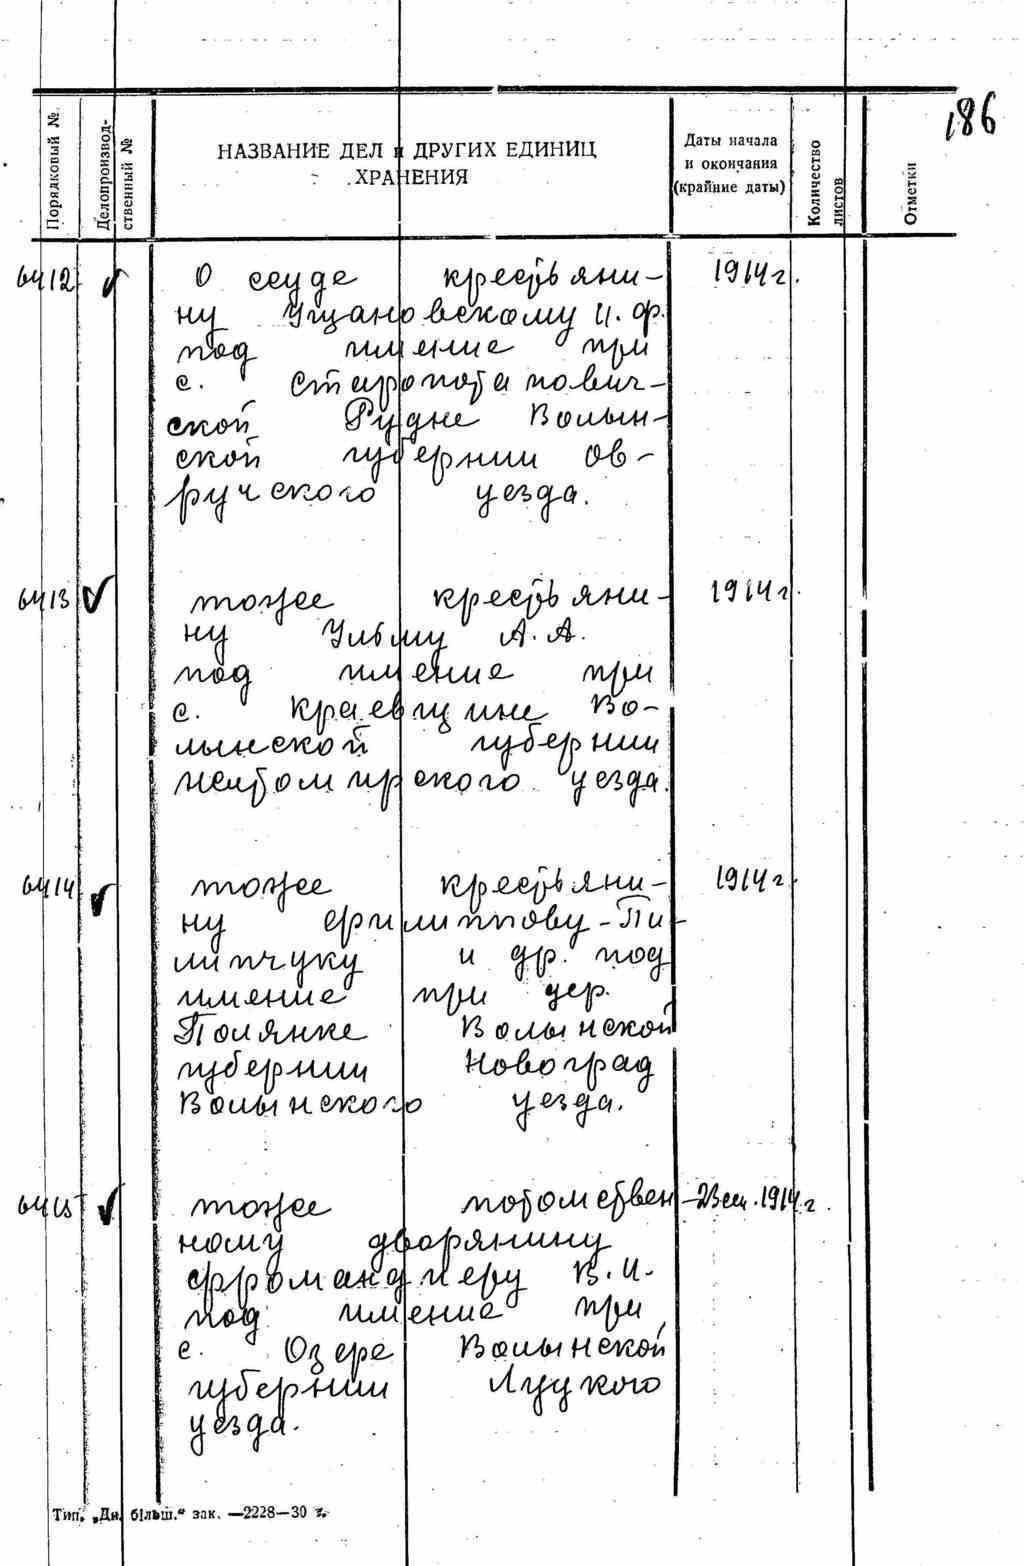 186
Порядковый №
Делопроизвод-
ственный №
НАЗВАНИЕ ДЕЛ и ДРУГИХ ЕДИНИЦ
ХРАНЕНИЯ
Даты начала
и окончания
(крайние даты)
Количество
листов
Отметки
6412 О ссуде крестьяни- 1914г.
ну Ущановскому И. Ф.
под имение при
с. Старопотапович-
ской Рудне Волын-
ской губернии Ов-
ручского уезда.
6413 тоже крестьяни- 1914г.
ну Ульму А. А.
под имение при
с. Краевщине Во-
лынской губернии
Житомирского уезда.
6414 тоже крестьяни- 1914г.
ну Филиппову-Пи-
липчуку и др. под
имение при дер.
Полянке Волынской
губернии Новоград
Волынского уезда.
6415 тоже потомствен -23 1914г.
ному дворянину
Фромандиеру В. И.
под имение при
с. Озере Волынской
губернии Луцкого
уезда.
Тип. „Дн. більш.“ зак. —2228—30 г.